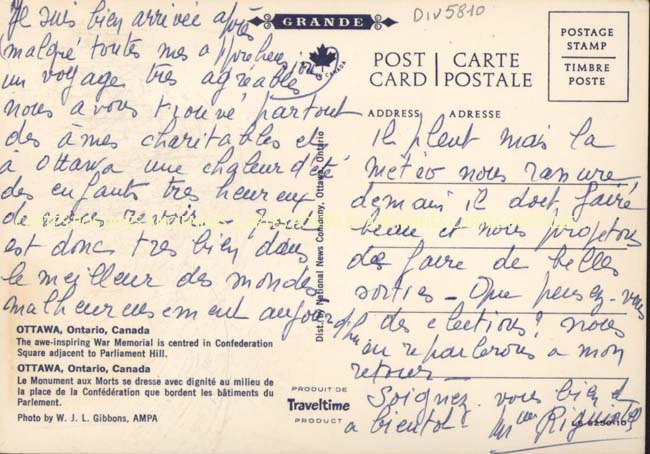 GRANDE
Div5810
Je suis bien arrivée après
malgré toutes mes appréhensions
un voyage très agréable
nous avons trouvé partout
des âmes charitables et
à Ottawa une chaleur d'été
des enfants très heureux
de nous revoir - Tout
est donc très bien dans
le meilleur des mondes
malheureusement aujourd'hui
OTTAWA, Ontario, Canada
The awe-inspiring War Memorial is centred in Confederation
Square adjacent to Parliament Hill.
OTTAWA, Ontario, Canada
Le Monument aux Morts se dresse avec dignité au milieu de
la place de la Confédération que bordent les bâtiments du
Parlement.
Photo by W. J. L. Gibbons, AMPA
CANADA
Dist. by National News Company, Ottawa, Ontario
PRODUIT DE
Traveltime
PRODUCT
POST CARD | CARTE POSTALE
POSTAGE
STAMP
TIMBRE
POSTE
ADDRESS ADRESSE
Il pleut mais la
météo nous rassure
demain il doit faire
beau et nous projetons
de faire de belles
sorties - Que pensez-vous
des élections? nous
en reparlerons a mon
retour -
Soignez vous bien et
a bientot!